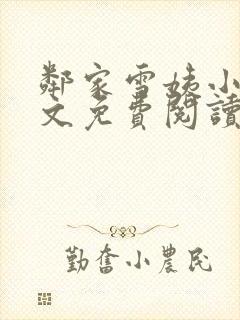 鄰家雪姨小
文免費閱讀
勤奮小農民